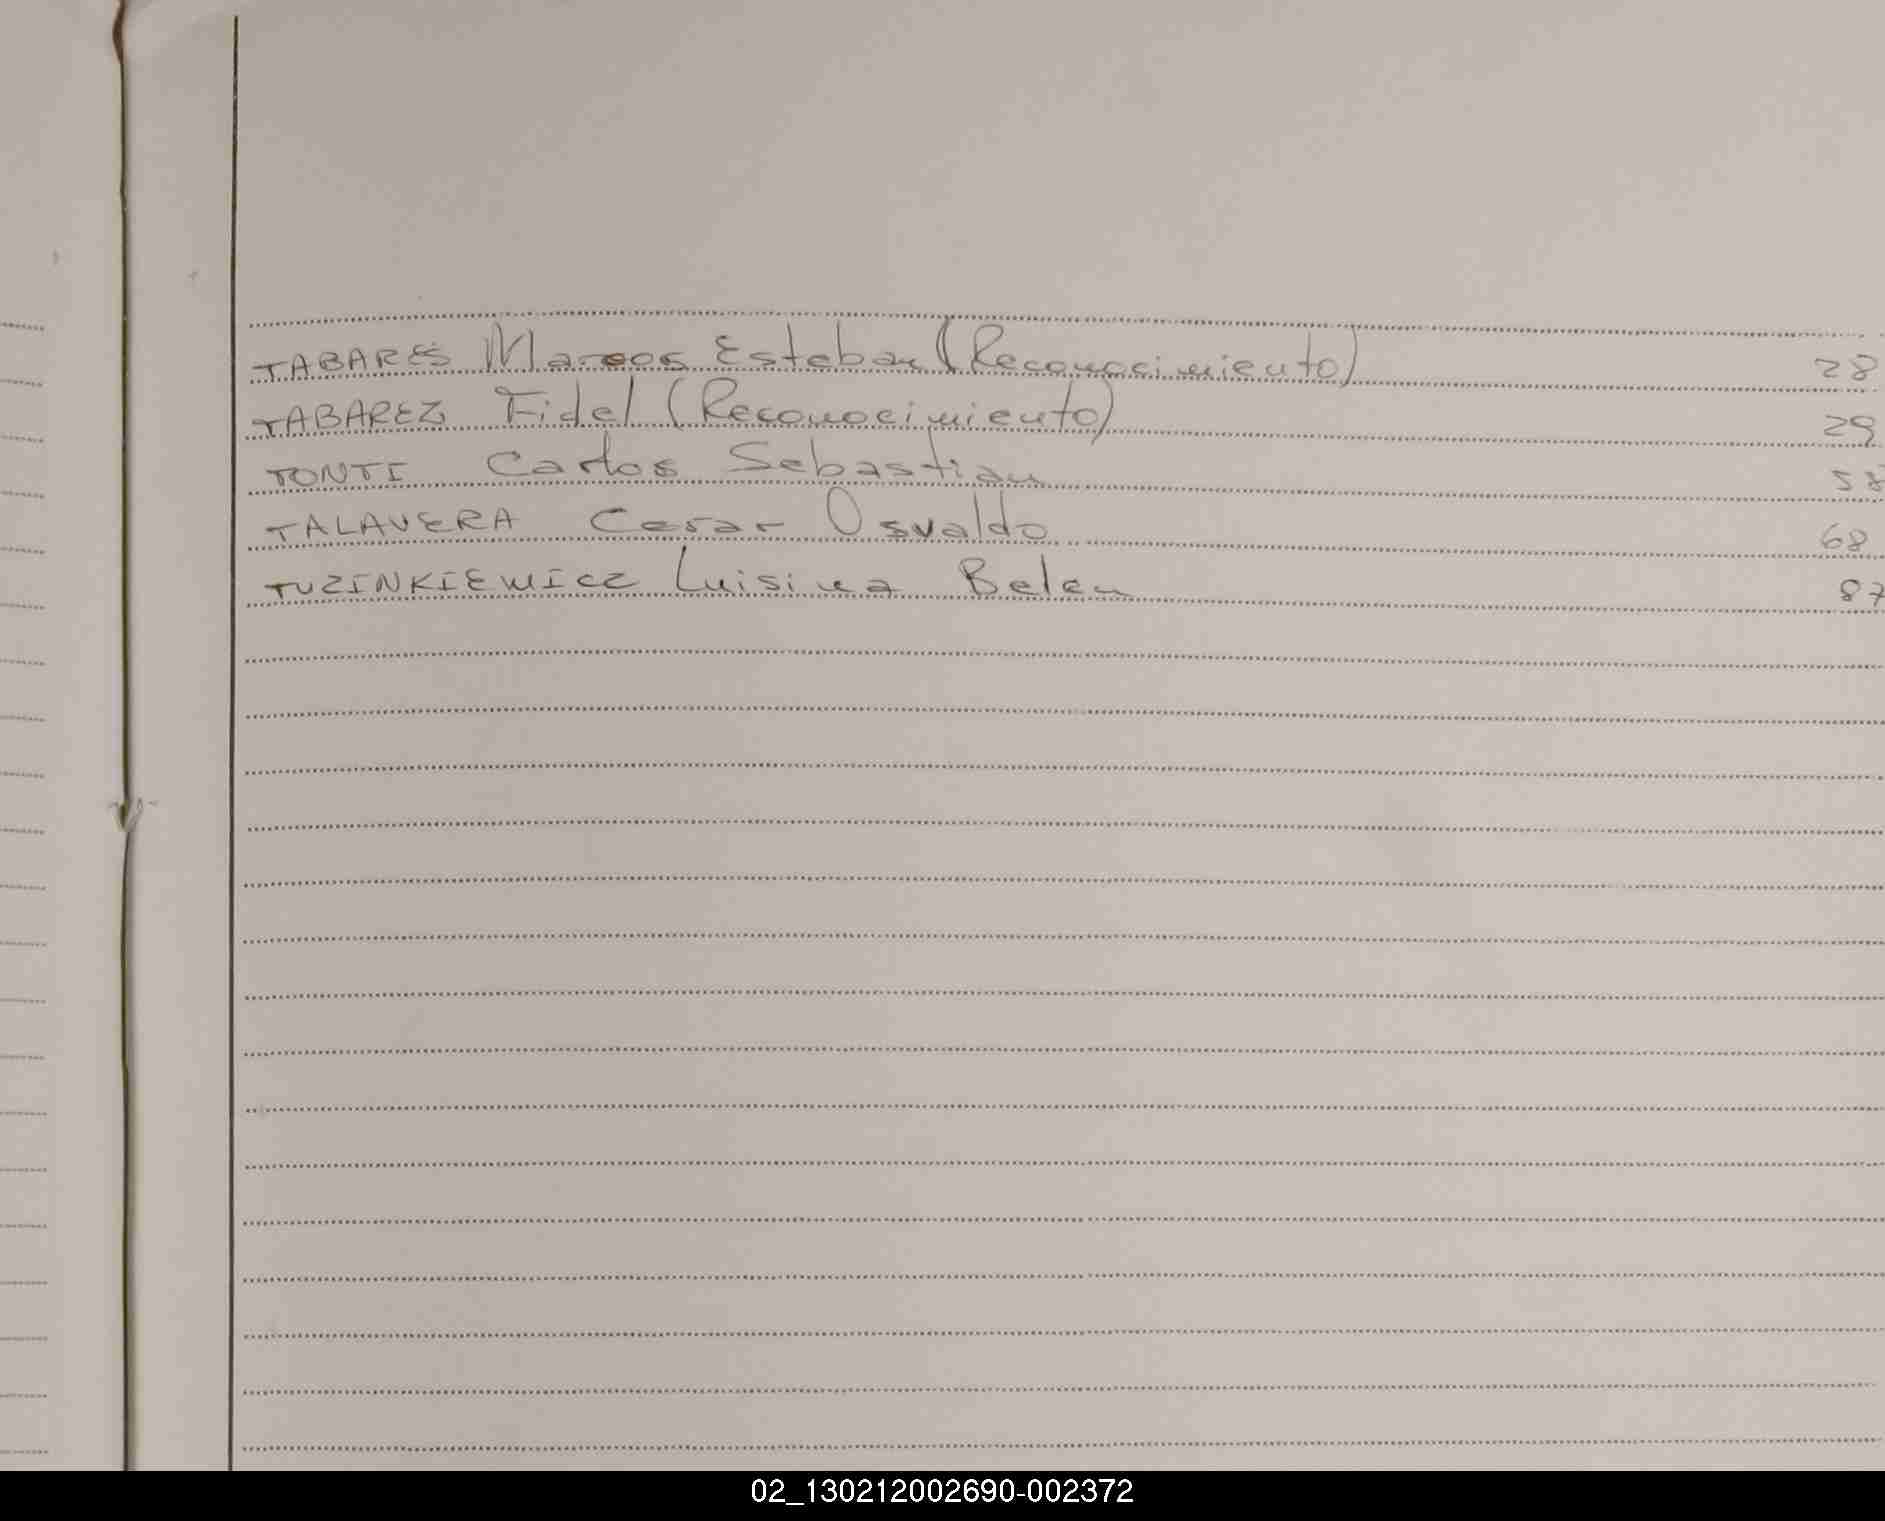 TABARES Marcos Esteban (Reconocimiento) 28
TABAREZ Fidel (Reconocimiento) 29
TONTI Carlos Sebastian 58
TALAVERA Cesar Osvaldo 68
TUZINKIEWICZ Luisina Belen 87
02_130212002690-002372